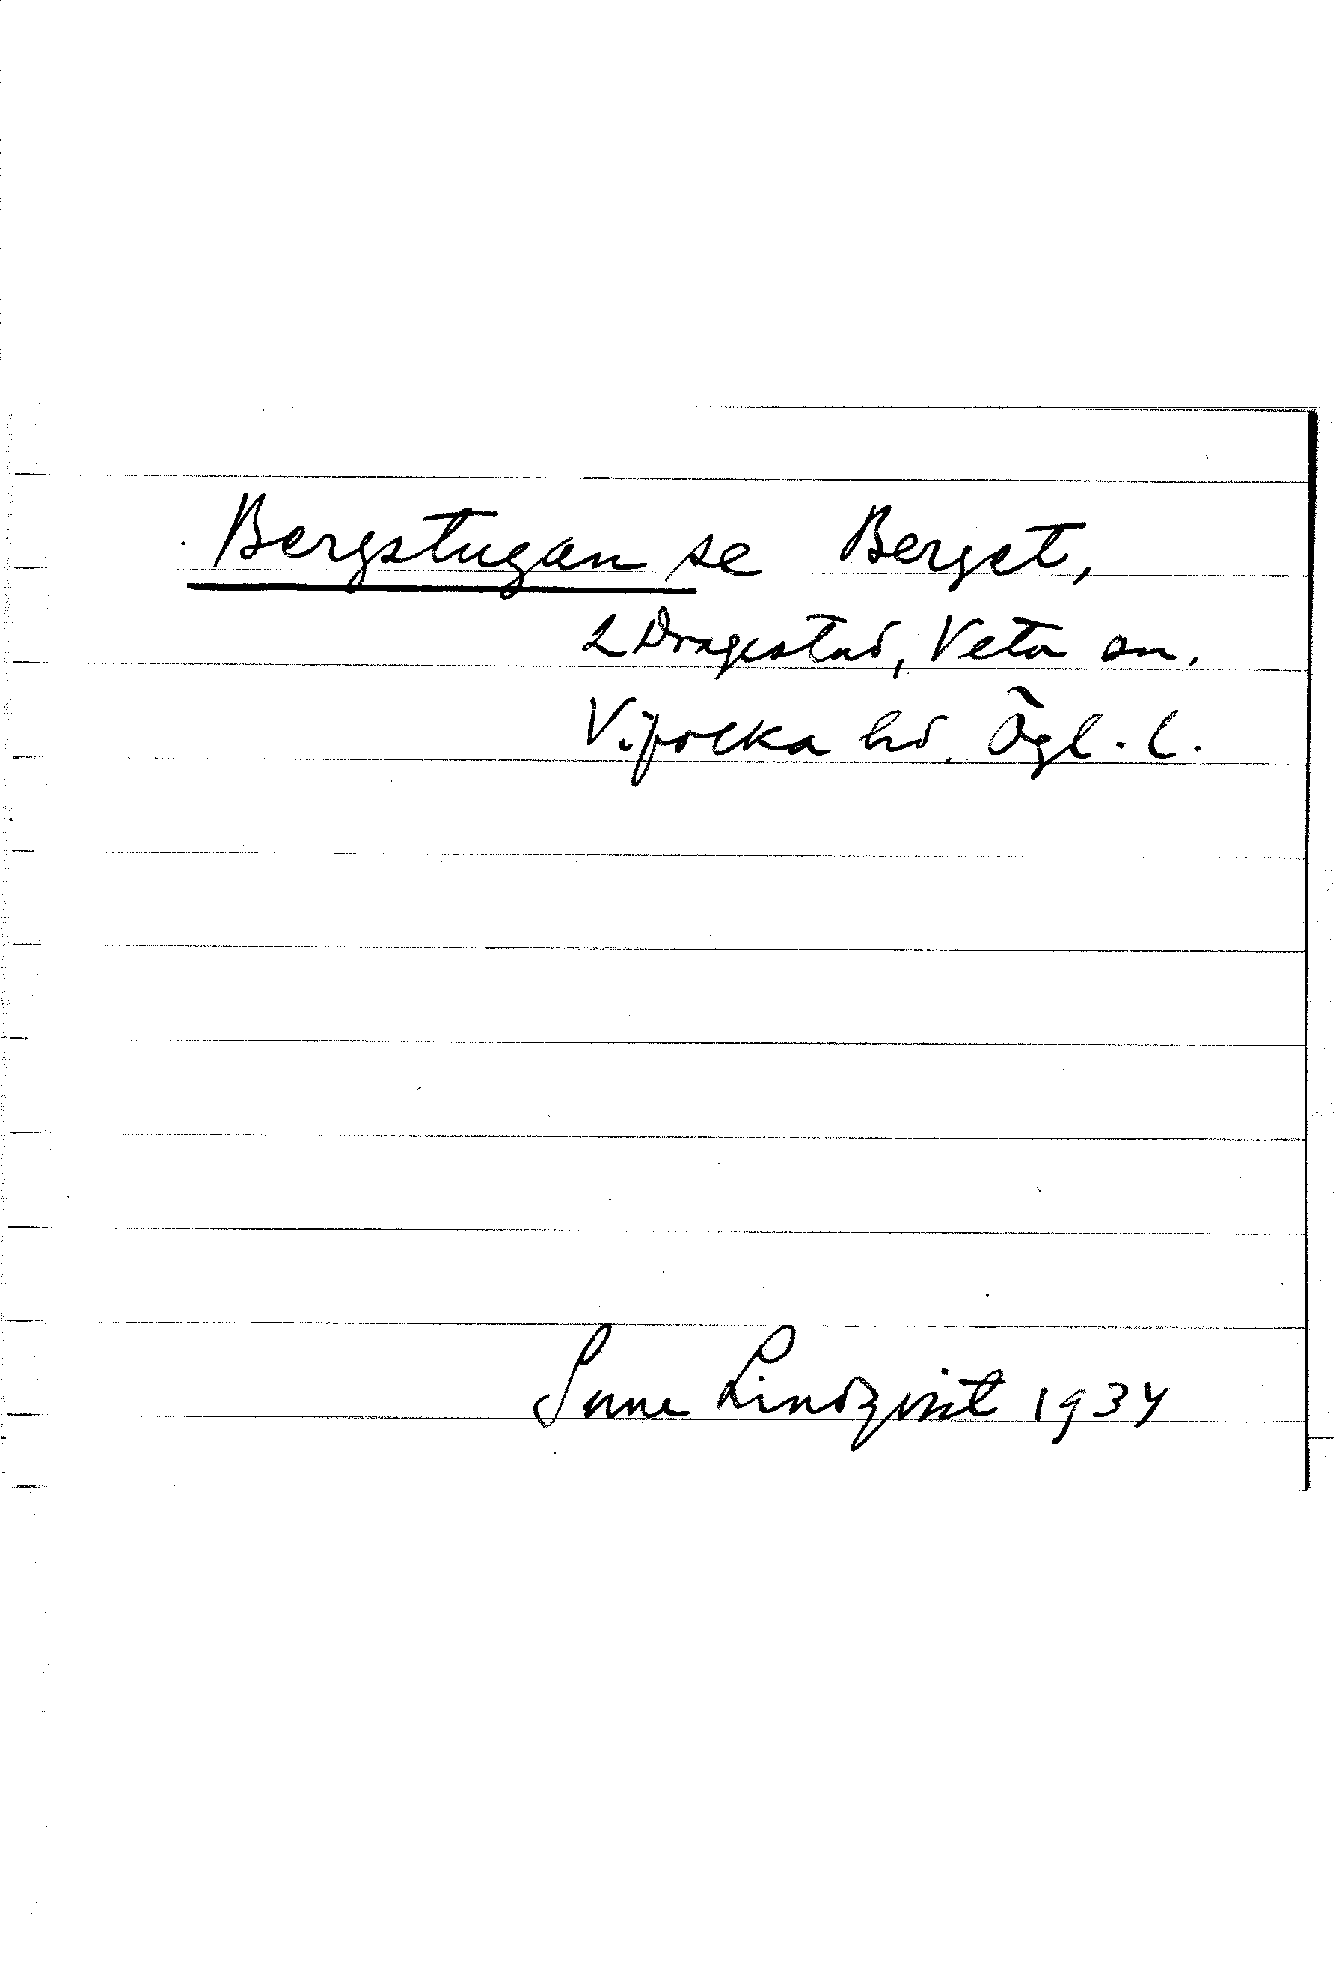 Bergstugan se Berget,
L Dragestad, Veta sn.
Vifolka hd. Ögl. l.
Sune Lindqvist 1934